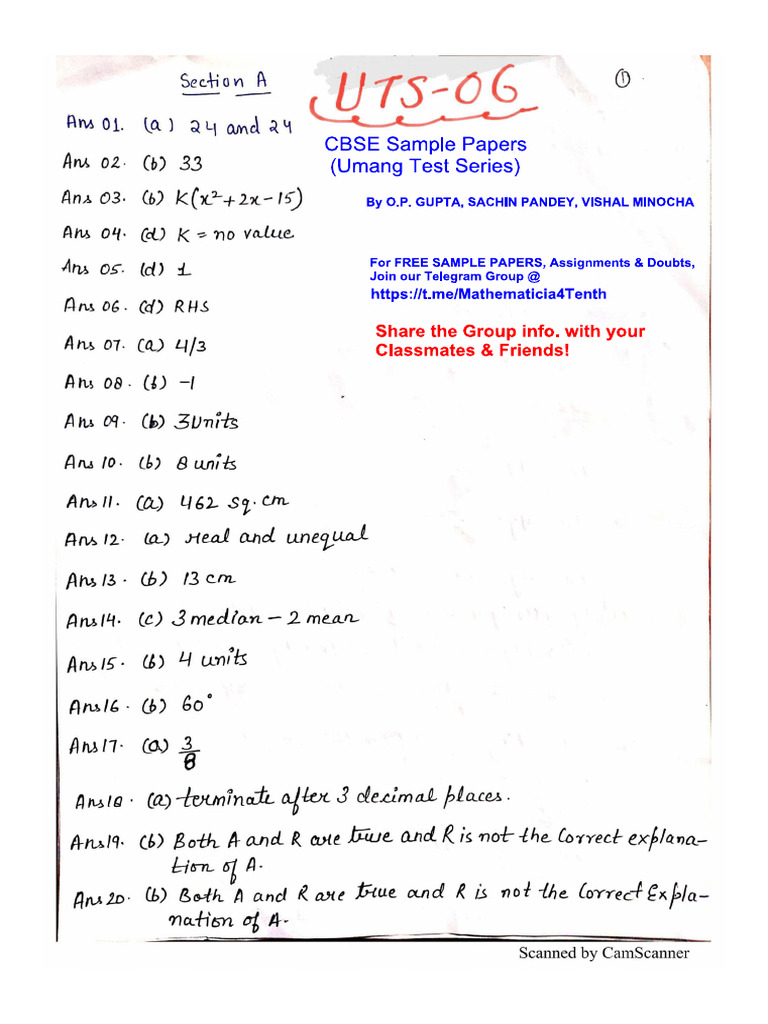 Section A
UTS-06
①
CBSE Sample Papers
(Umang Test Series)
By O.P. GUPTA, SACHIN PANDEY, VISHAL MINOCHA
For FREE SAMPLE PAPERS, Assignments & Doubts,
Join our Telegram Group @
https://t.me/Mathematicia4Tenth
Share the Group info. with your
Classmates & Friends!
Ans 01. (a) 24 and 24
Ans 02. (b) 33
Ans 03. (b) K(x²+2x-15)
Ans 04. (d) K = no value
Ans 05. (d) 1
Ans 06. (d) RHS
Ans 07. (a) 4/3
Ans 08. (b) -1
Ans 09. (b) 3Units
Ans 10. (b) 8 units
Ans 11. (a) 462 sq. cm
Ans 12. (a) real and unequal
Ans 13. (b) 13 cm
Ans 14. (c) 3 median - 2 mean
Ans 15. (b) 4 units
Ans 16. (b) 60°
Ans 17. (a) 3/8
Ans 18. (a) terminate after 3 decimal places.
Ans 19. (b) Both A and R are true and R is not the Correct explana-
tion of A.
Ans 20. (b) Both A and R are true and R is not the Correct Expla-
nation of A.
Scanned by CamScanner